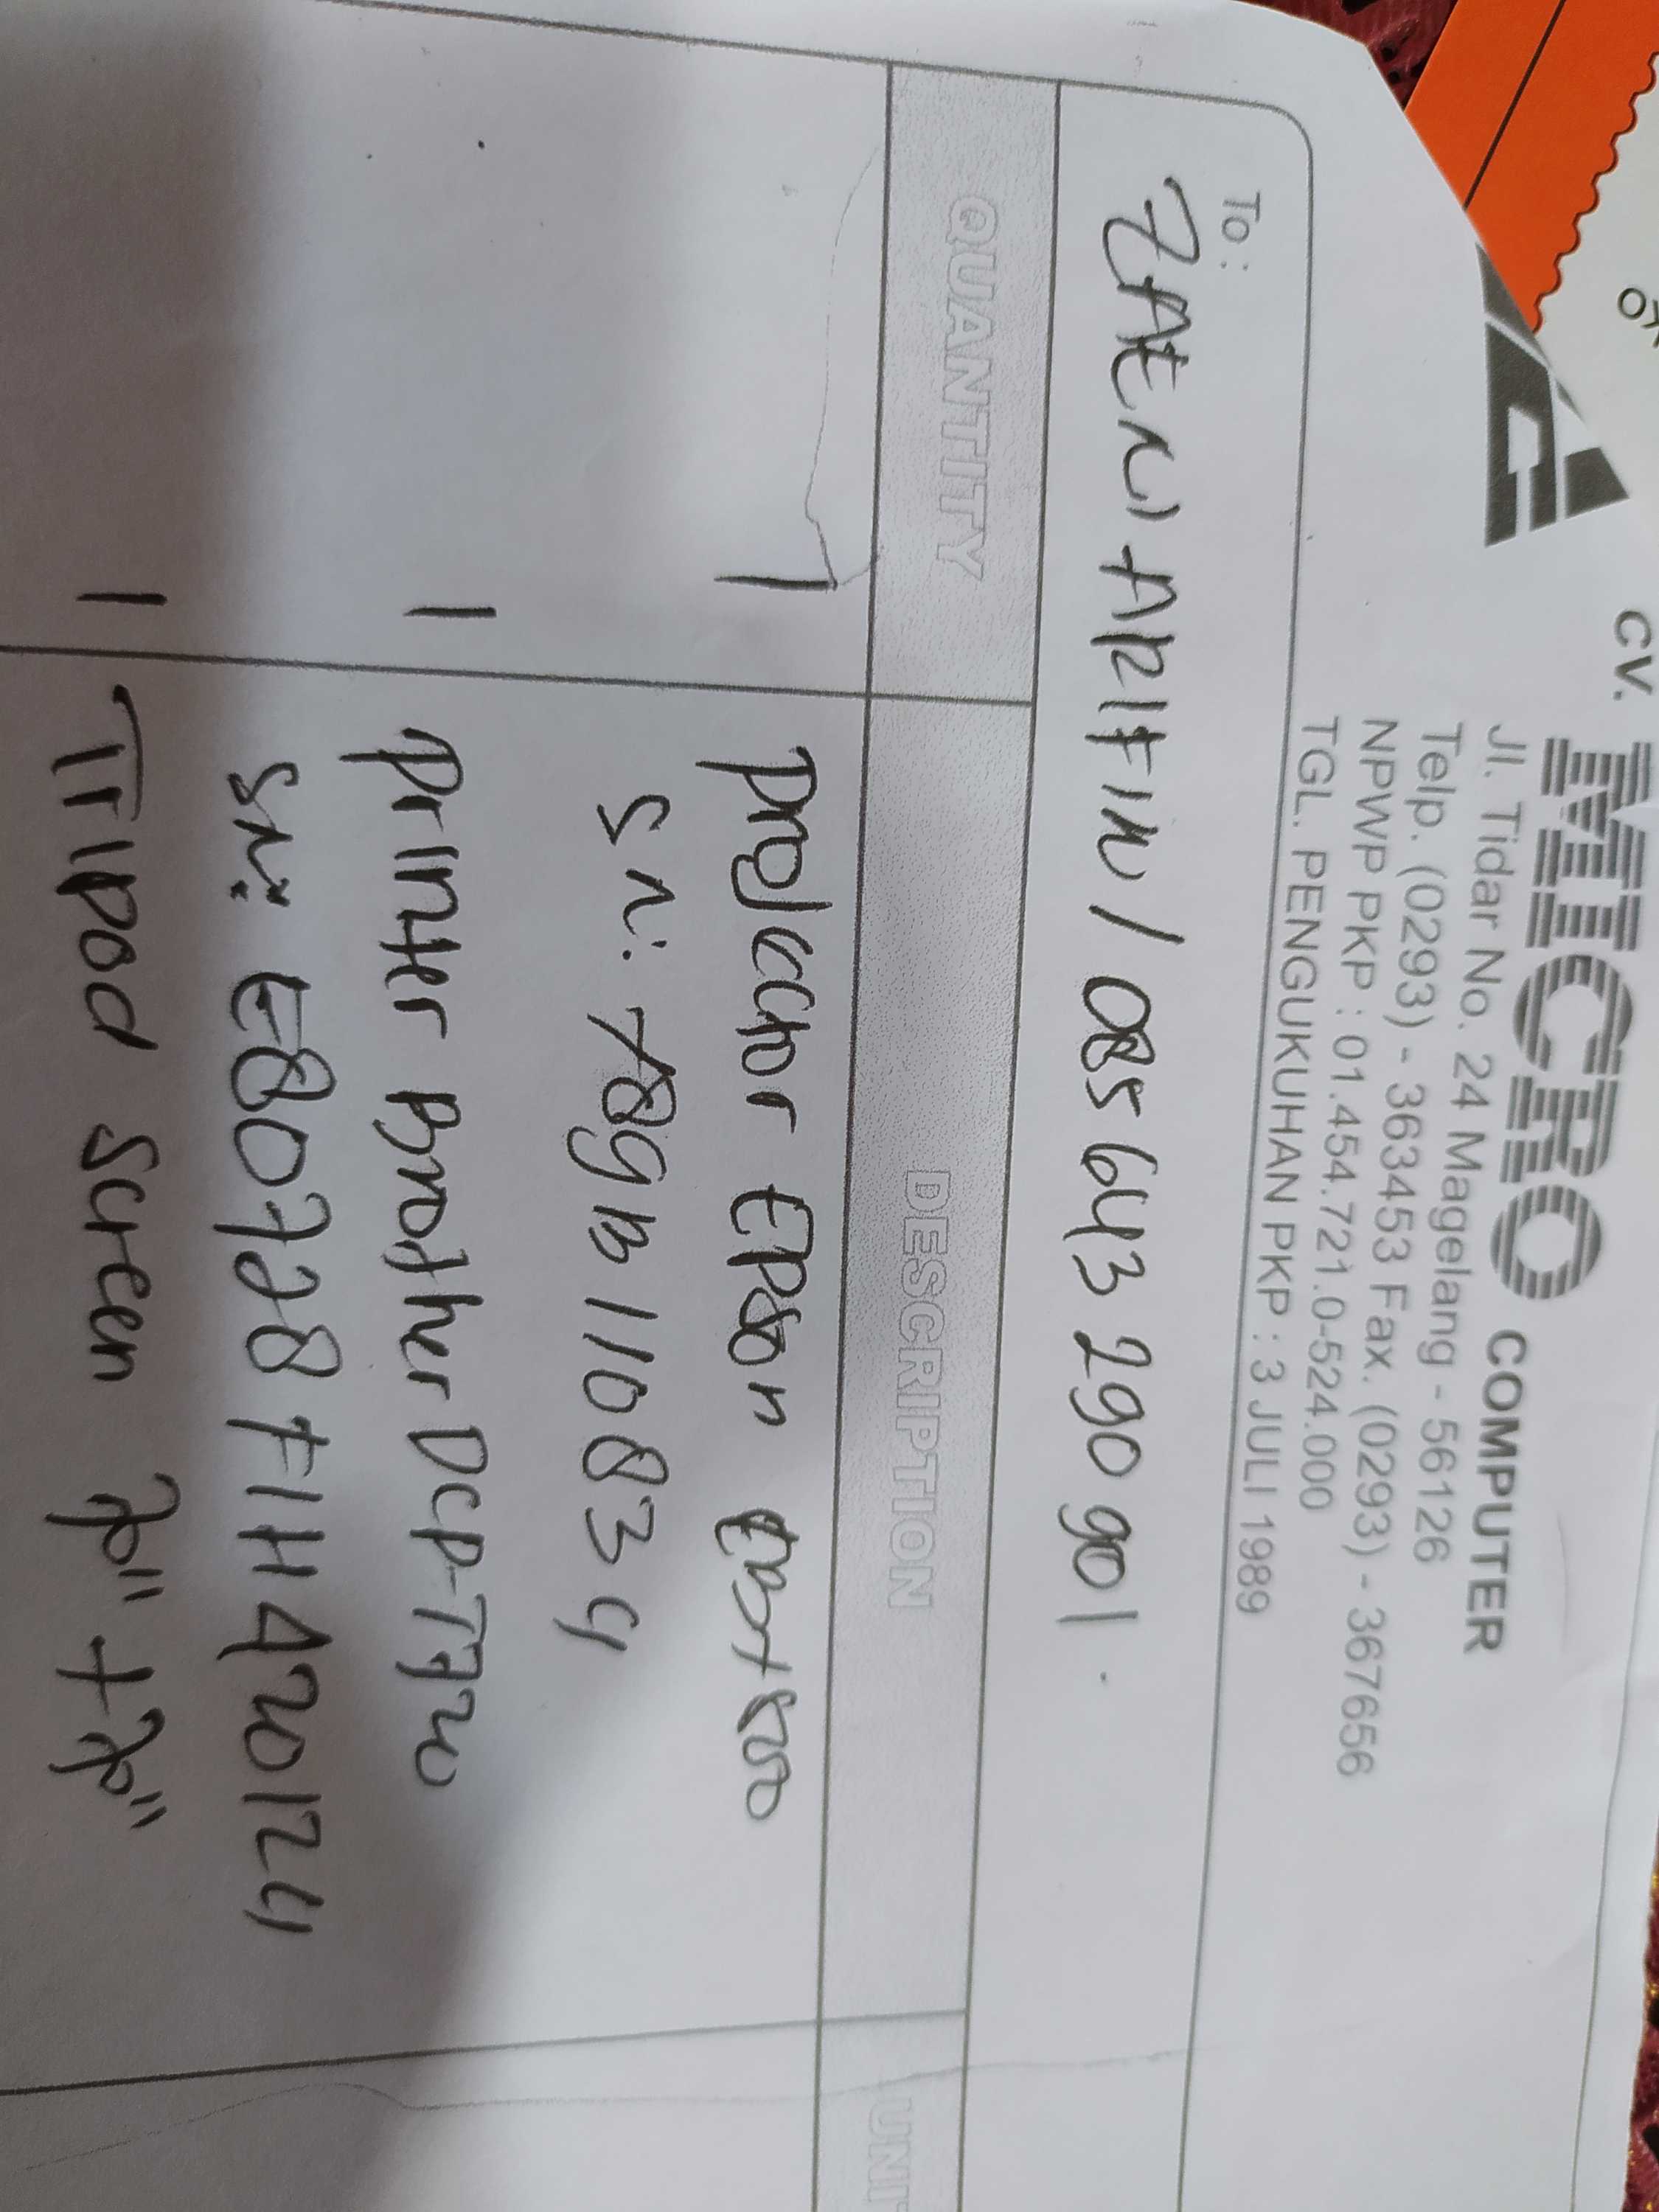 CV. MICRO COMPUTER
Jl. Tidar No. 24 Magelang - 56126
Telp. (0293) - 363453 Fax. (0293) - 367656
NPWP PKP : 01.454.721.0-524.000
TGL. PENGUKUHAN PKP : 3 JULI 1989
To :
ZAENI ARIFIN / 085 643 290 901.
QUANTITY DESCRIPTION UNIT
1 Projector Epson
SN: X89B110834
1 Printer Brother DCP-T720
SN: E80728F1H420124
1 Tripod Screen 70" + 70"